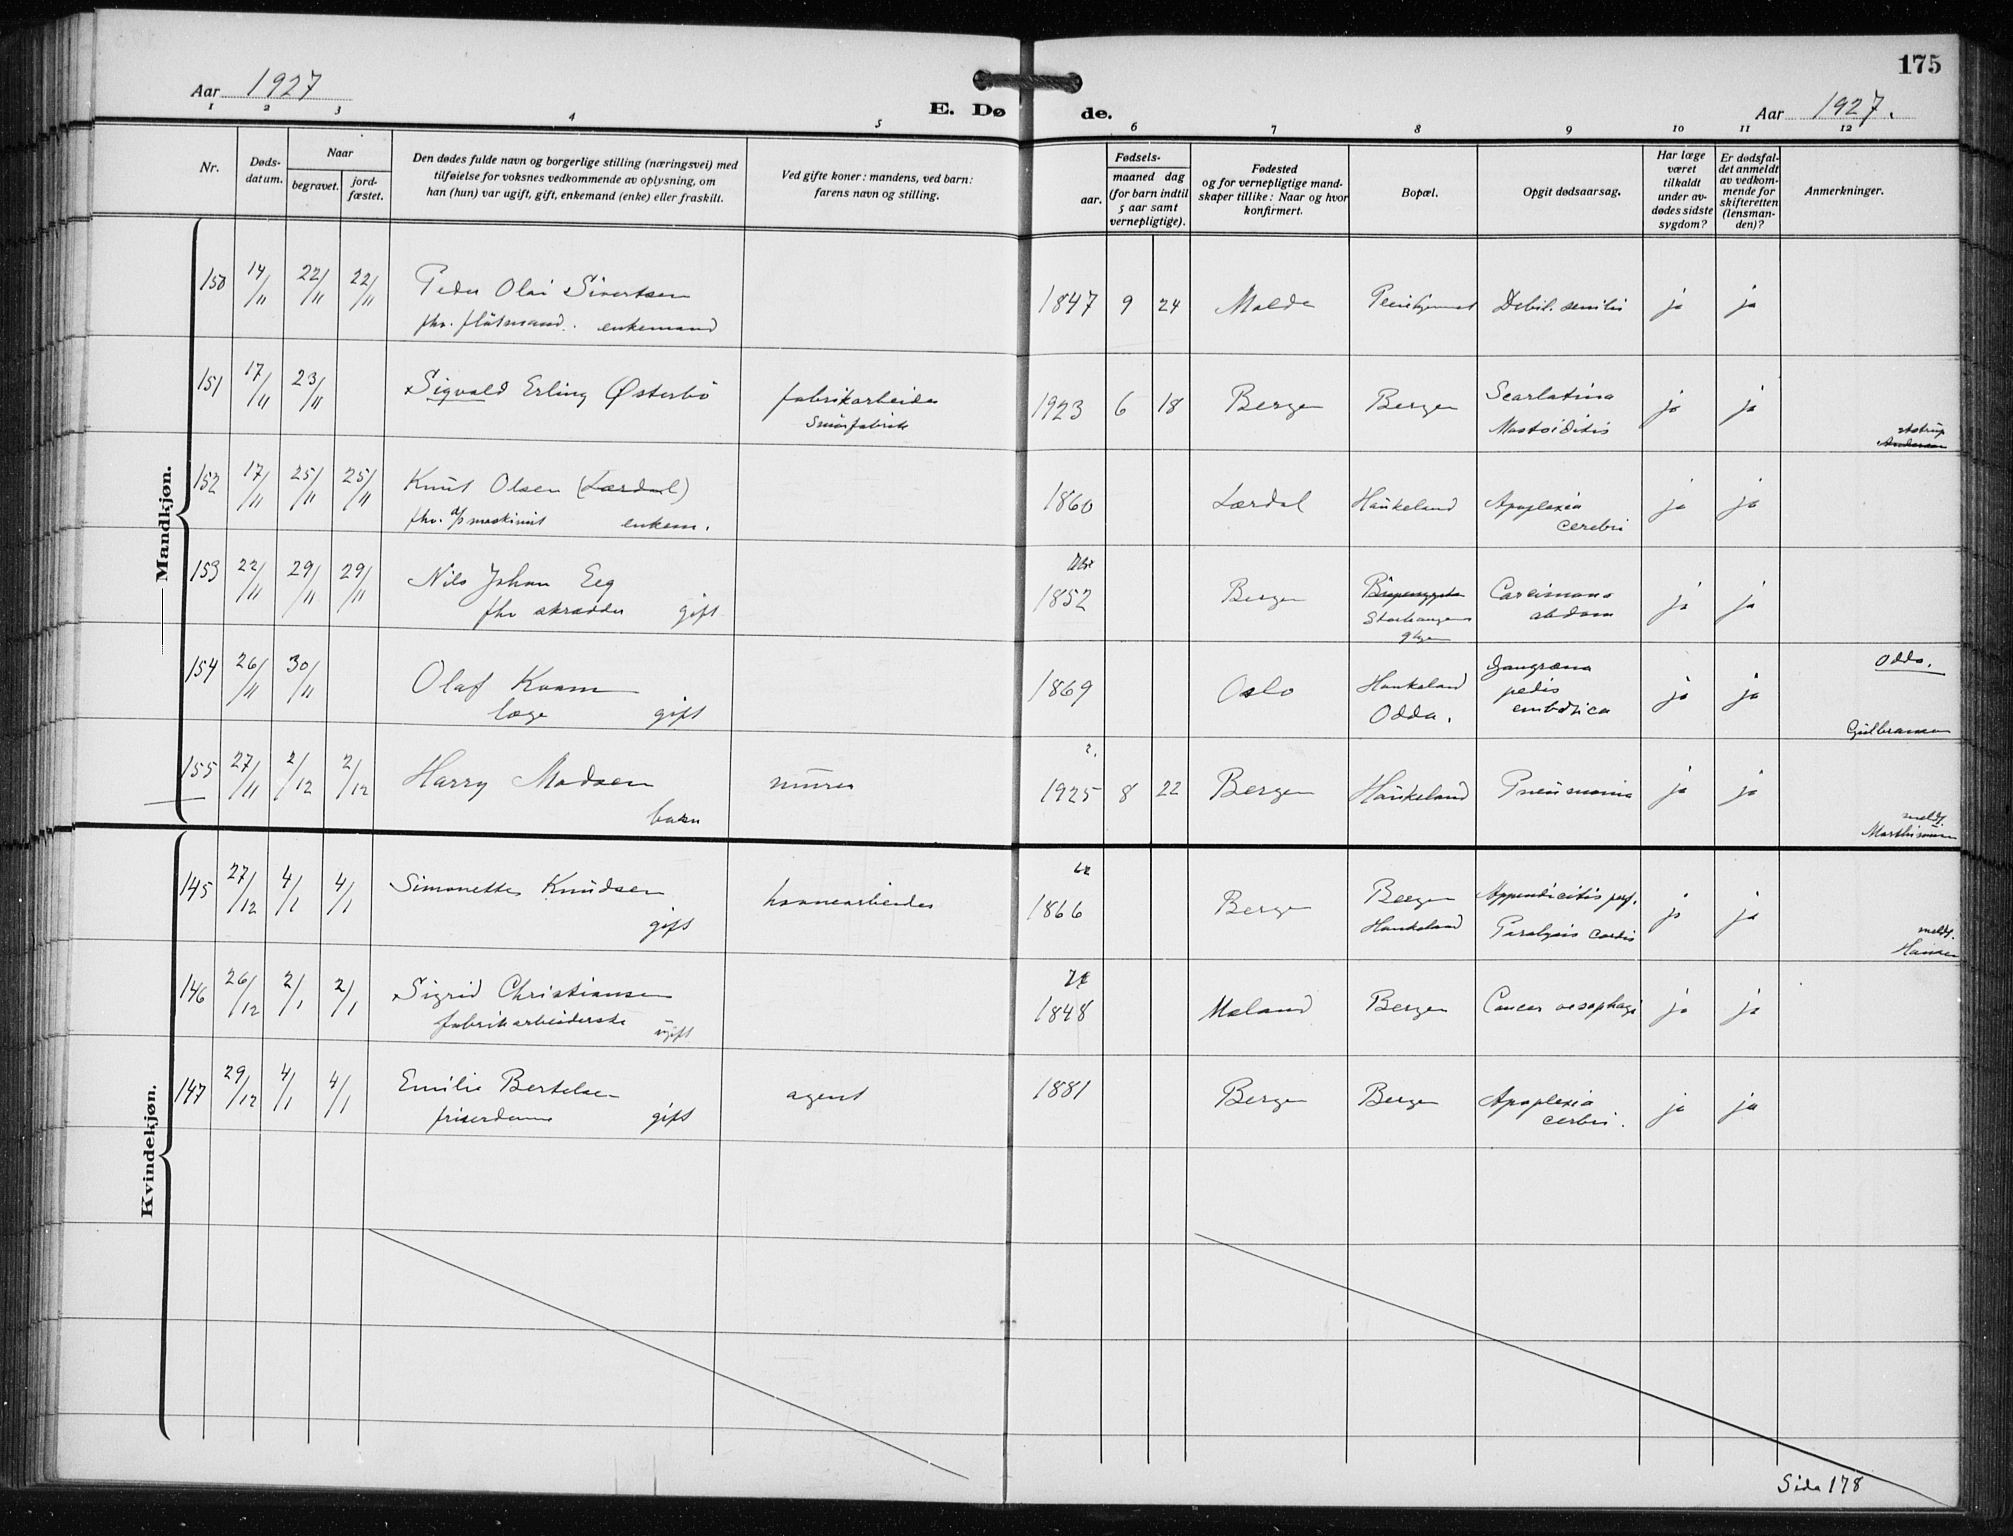 175
Aar 1927
E. Dø de.
Aar 1927.
1 2 3 4 5 6 7 8 9 10 11 12
Nr.
Døds-
datum.
Naar
begravet.
jord-
fæstet.
Den dødes fulde navn og borgerlige stilling (næringsvei) med
tilføielse for voksnes vedkommende av oplysning, om
han (hun) var ugift, gift, enkemand (enke) eller fraskilt.
Ved gifte koner: mandens, ved barn:
farens navn og stilling.
Fødsels-
aar.
maaned dag
(for barn indtil
5 aar samt
vernepligtige).
Fødested
og for vernepligtige mand-
skaper tillike: Naar og hvor
konfirmert.
Bopæl.
Opgit dødsaarsag.
Har læge
været
tilkaldt
under av-
dødes sidste
sygdom?
Er dødsfal-
det anmeldt
av vedkom-
mende for
skifteretten
(lensman-
den)?
Anmerkninger.
Mandkjøn.
150 14/11 22/11 22/11 Peder Olai Sivertsen 1847 9 24 Molde Pleiehjemmet Debil. senilis ja ja
fhv. flåtmand. enkemand
151 17/11 23/11 Sigvald Erling Østerbö fabrikarbeider 1923 6 18 Bergen Bergen Scarlatina ja ja
Smörfabrik Mastoiditis
152 17/11 25/11 25/11 Knut Olsen (Lærdal) 1860 Lærdal Haukeland Apoplexia ja ja
fhv. maskinist enkem. cerebri
153 22/11 29/11 29/11 Nils Johan Eeg 1852 Bergen Carcinoma ja ja
fhv skrædder gift abdom
154 26/11 30/11 Olaf Kvam 1869 Oslo Haukeland Gangræna ja ja Odda.
læge gift Odda. pedis
embolica
Gulbransen
155 27/11 2/12 2/12 Harry Madsen murer 1925 8 22 Bergen Haukeland Pneumonia ja ja
barn
meldt
Kvindekjøn.
145 27/12 4/1 4/1 Simonette Knudsen havnearbeider 1866 Bergen Bergen Appendicitis perf. ja ja
gift Haukeland Paralysis cordis
meldt.
Hansen
146 26/12 2/1 2/1 Sigrid Christiansen 1848 Meland Bergen Cancer oesophagi ja ja
fabrikarbeiderske ugift
147 29/12 4/1 4/1 Emilie Bertelsen agent 1881 Bergen Bergen Apoplexia ja ja
friserdame gift cerbri.
Side 178